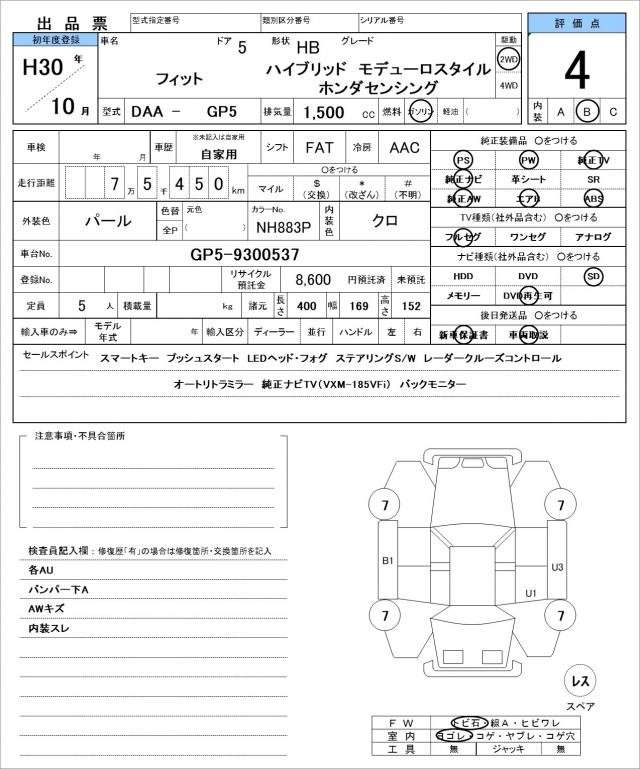 出品票 型式指定番号 類別区分番号 シリアル番号 評価点
初年度登録 車名 ドア 5 形状 HB グレード 駆動
H30 年 フィット ハイブリッド モデューロスタイル 2WD 4
ホンダセンシング 4WD
10 月 型式 DAA － GP5 排気量 1,500 cc 燃料 ガソリン 軽油 ( ) 内装 A B C
車検 年 月 車歴 ※未記入は自家用 自家用 シフト FAT 冷房 AAC 純正装備品 〇をつける
PS PW 純正TV
走行距離 7 万 5 千 4 5 0 km 〇をつける 純正ナビ 革シート SR
マイル $ (交換) * (改ざん) # (不明) 純正AW エアB ABS
外装色 パール 色替 元色 カラーNo. 内装色 クロ TV種類(社外品含む) 〇をつける
全P ( ) NH883P フルセグ ワンセグ アナログ
車台No. GP5-9300537 ナビ種類(社外品含む) 〇をつける
登録No. リサイクル預託金 8,600 円預託済 未預託 HDD DVD SD
定員 5 人 積載量 kg 諸元 長さ 400 幅 169 高さ 152 メモリー DVD再生可
後日発送品 〇をつける
輸入車のみ⇒ モデル年式 年 輸入区分 ディーラー 並行 ハンドル 左 右 新車保証書 車両取説
セールスポイント スマートキー プッシュスタート LEDヘッド・フォグ ステアリングS/W レーダークルーズコントロール
オートリトラミラー 純正ナビTV(VXM-185VFi) バックモニター
注意事項・不具合箇所
検査員記入欄：修復歴「有」の場合は修復箇所・交換箇所を記入
各AU
バンパー下A
AWキズ
内装スレ
7 7
B1 U3
U1
7 7
レス
スペア
FW トビ石・線A・ヒビワレ
室内 ヨゴレ・コゲ・ヤブレ・コゲ穴
工具 無 ジャッキ 無